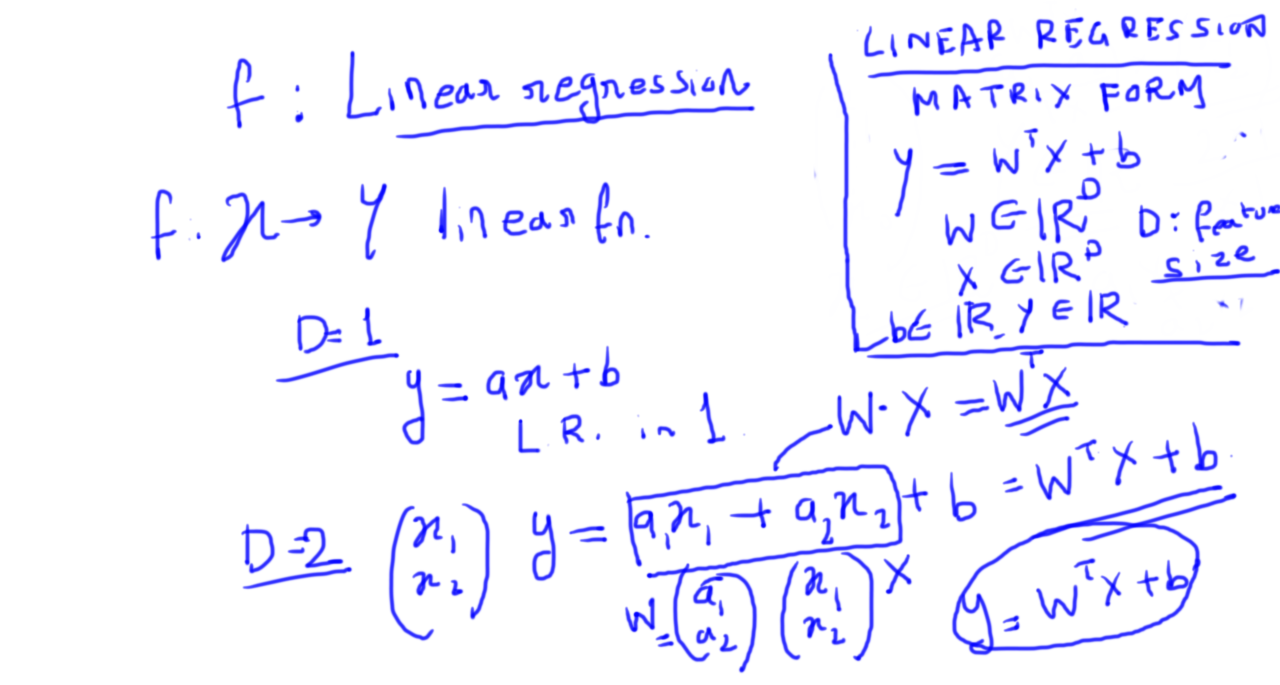 f : Linear regression
f : x → y linear fn.
D = 1
y = ax + b
L.R. in 1
D = 2 (x₁ x₂) y = a₁x₁ + a₂x₂ + b = WᵀX + b
W·X = WᵀX
W = (a₁ a₂) (x₁ x₂) X
y = WᵀX + b
LINEAR REGRESSION
MATRIX FORM
Y = WᵀX + b
W ∈ ℝᴰ D : featur
X ∈ ℝᴰ size
b ∈ ℝ Y ∈ ℝ